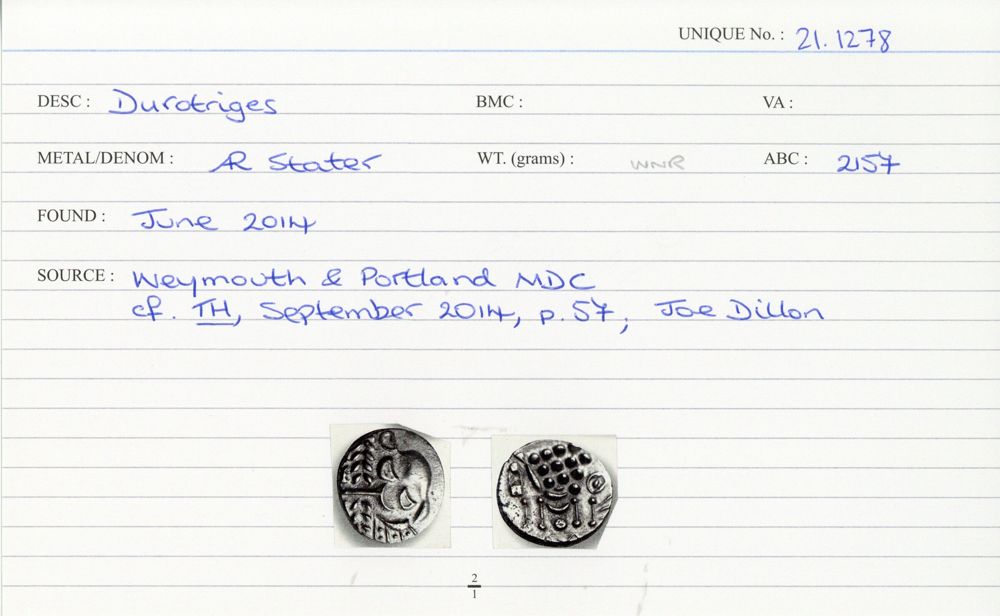 UNIQUE No. : 21.1278
DESC : Durotriges BMC : VA :
METAL/DENOM : AR Stater WT. (grams) : WNR ABC : 2157
FOUND : June 2014
SOURCE : Weymouth & Portland MDC
cf. TH, September 2014, p. 57, Joe Dillon
2
1